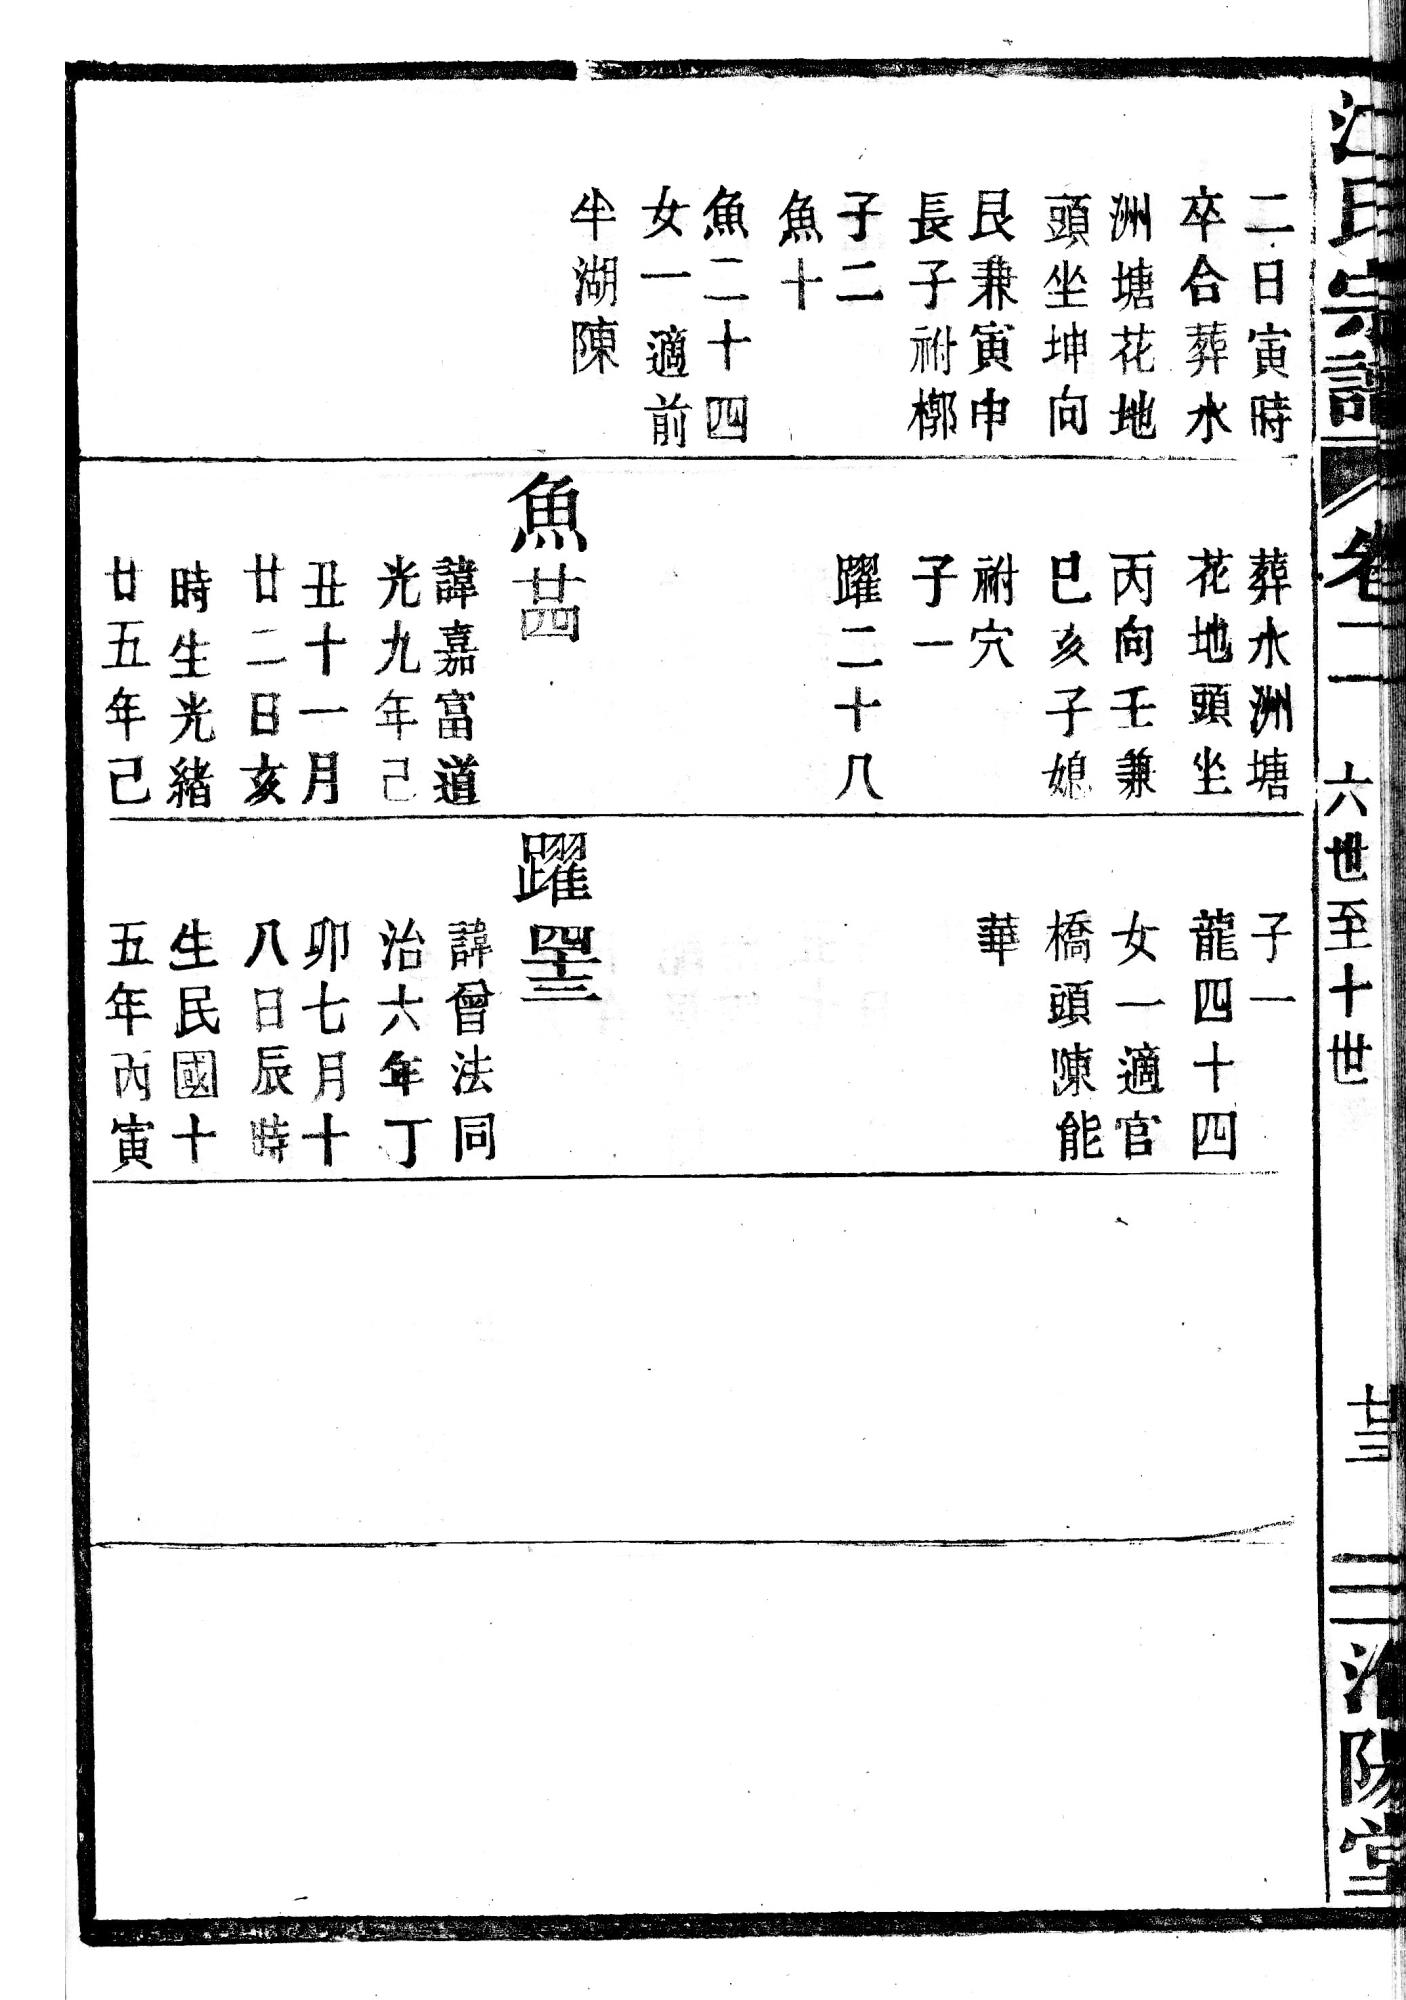 江氏宗譜
卷二
六世至十世
廿三
濟陽堂
二日寅時
卒合葬水
洲塘花地
頭坐坤向
艮兼寅申
長子祔槨
子二
魚十
魚二十四
女一適前
牛湖陳
葬水洲塘
花地頭坐
丙向壬兼
巳亥子媳
祔穴
子一
躍二十八
魚廿四
諱嘉富道
光九年己
丑十一月
廿二日亥
時生光緒
廿五年己
子一
龍四十四
女一適官
橋頭陳能
華
躍四十三
諱曾法同
治六年丁
卯七月十
八日辰時
生民國十
五年丙寅